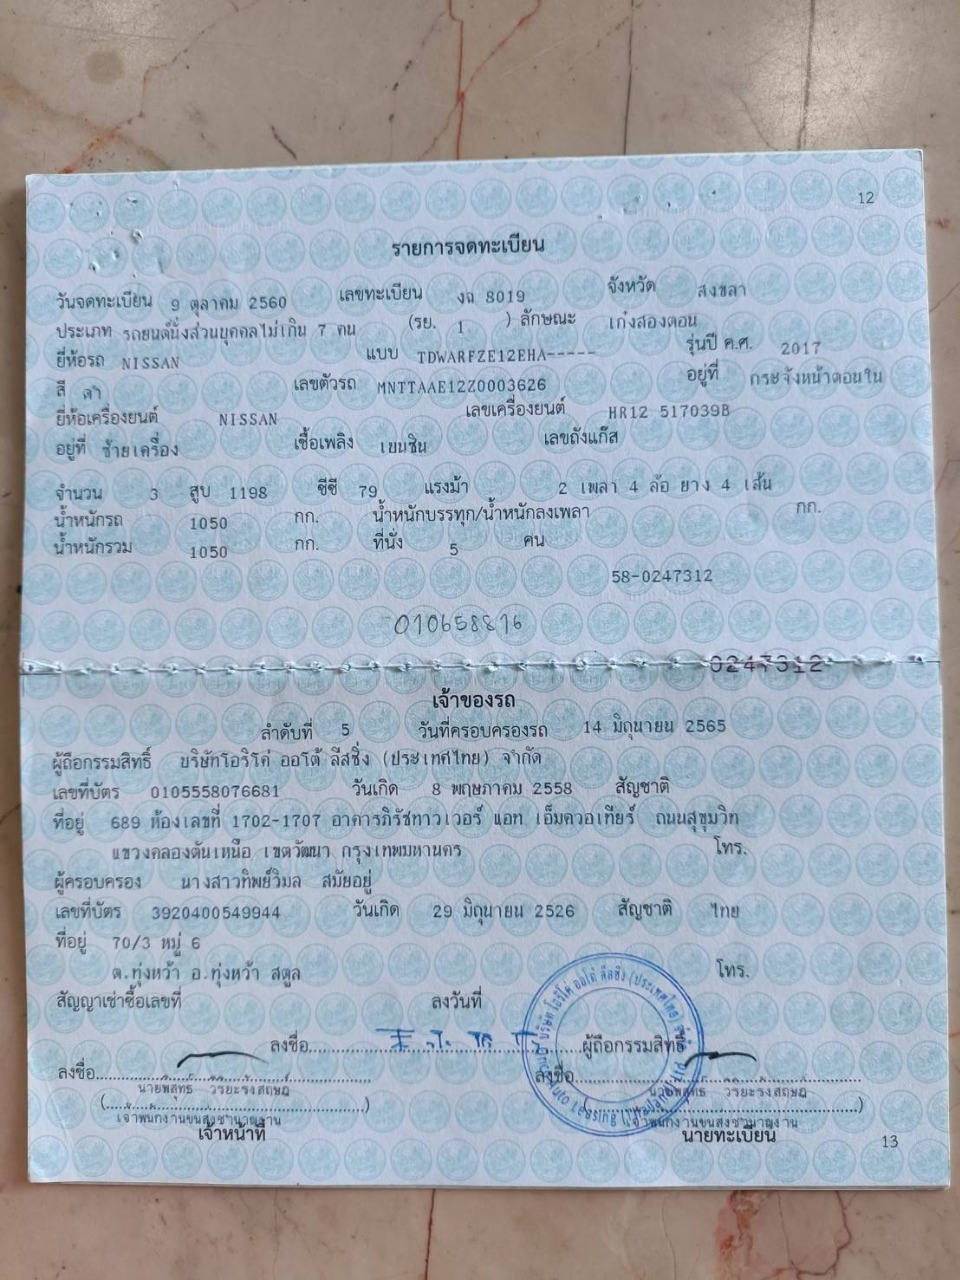 12
รายการจดทะเบียน
วันจดทะเบียน 9 ตุลาคม 2560 เลขทะเบียน งฉ 8019 จังหวัด สงขลา
ประเภท รถยนต์นั่งส่วนบุคคลไม่เกิน 7 คน (รย. 1 ) ลักษณะ เก๋งสองตอน
ยี่ห้อรถ NISSAN แบบ TDWARFZE12EHA----- รุ่นปี ค.ศ. 2017
สี ดำ เลขตัวรถ MNTTAAE12Z0003626 อยู่ที่ กระจังหน้าตอนใน
ยี่ห้อเครื่องยนต์ NISSAN เลขเครื่องยนต์ HR12 517039B
อยู่ที่ ซ้ายเครื่อง เชื้อเพลิง เบนซิน เลขถังแก๊ส
จำนวน 3 สูบ 1198 ซีซี 79 แรงม้า 2 เพลา 4 ล้อ ยาง 4 เส้น
น้ำหนักรถ 1050 กก. น้ำหนักบรรทุก/น้ำหนักลงเพลา กก.
น้ำหนักรวม 1050 กก. ที่นั่ง 5 คน
58-0247312
010658816
0247312
เจ้าของรถ
ลำดับที่ 5 วันที่ครอบครองรถ 14 มิถุนายน 2565
ผู้ถือกรรมสิทธิ์ บริษัทโอริโค่ ออโต้ ลีสซิ่ง (ประเทศไทย) จำกัด
เลขที่บัตร 0105558076681 วันเกิด 8 พฤษภาคม 2558 สัญชาติ
ที่อยู่ 689 ห้องเลขที่ 1702-1707 อาคารภิรัชทาวเวอร์ แอท เอ็มควอเทียร์ ถนนสุขุมวิท
แขวงคลองตันเหนือ เขตวัฒนา กรุงเทพมหานคร โทร.
ผู้ครอบครอง นางสาวทิพย์วิมล สมัยอยู่
เลขที่บัตร 3920400549944 วันเกิด 29 มิถุนายน 2526 สัญชาติ ไทย
ที่อยู่ 70/3 หมู่ 6
ต.ทุ่งหว้า อ.ทุ่งหว้า สตูล โทร.
สัญญาเช่าซื้อเลขที่ ลงวันที่
ลงชื่อ ผู้ถือกรรมสิทธิ์
ลงชื่อ ลงชื่อ
นายพสุทธ์ วิริยะรังสฤษฎ์ นายพสุทธ์ วิริยะรังสฤษฎ์
เจ้าพนักงานขนส่งชำนาญงาน เจ้าพนักงานขนส่งชำนาญงาน
เจ้าหน้าที่ นายทะเบียน
13